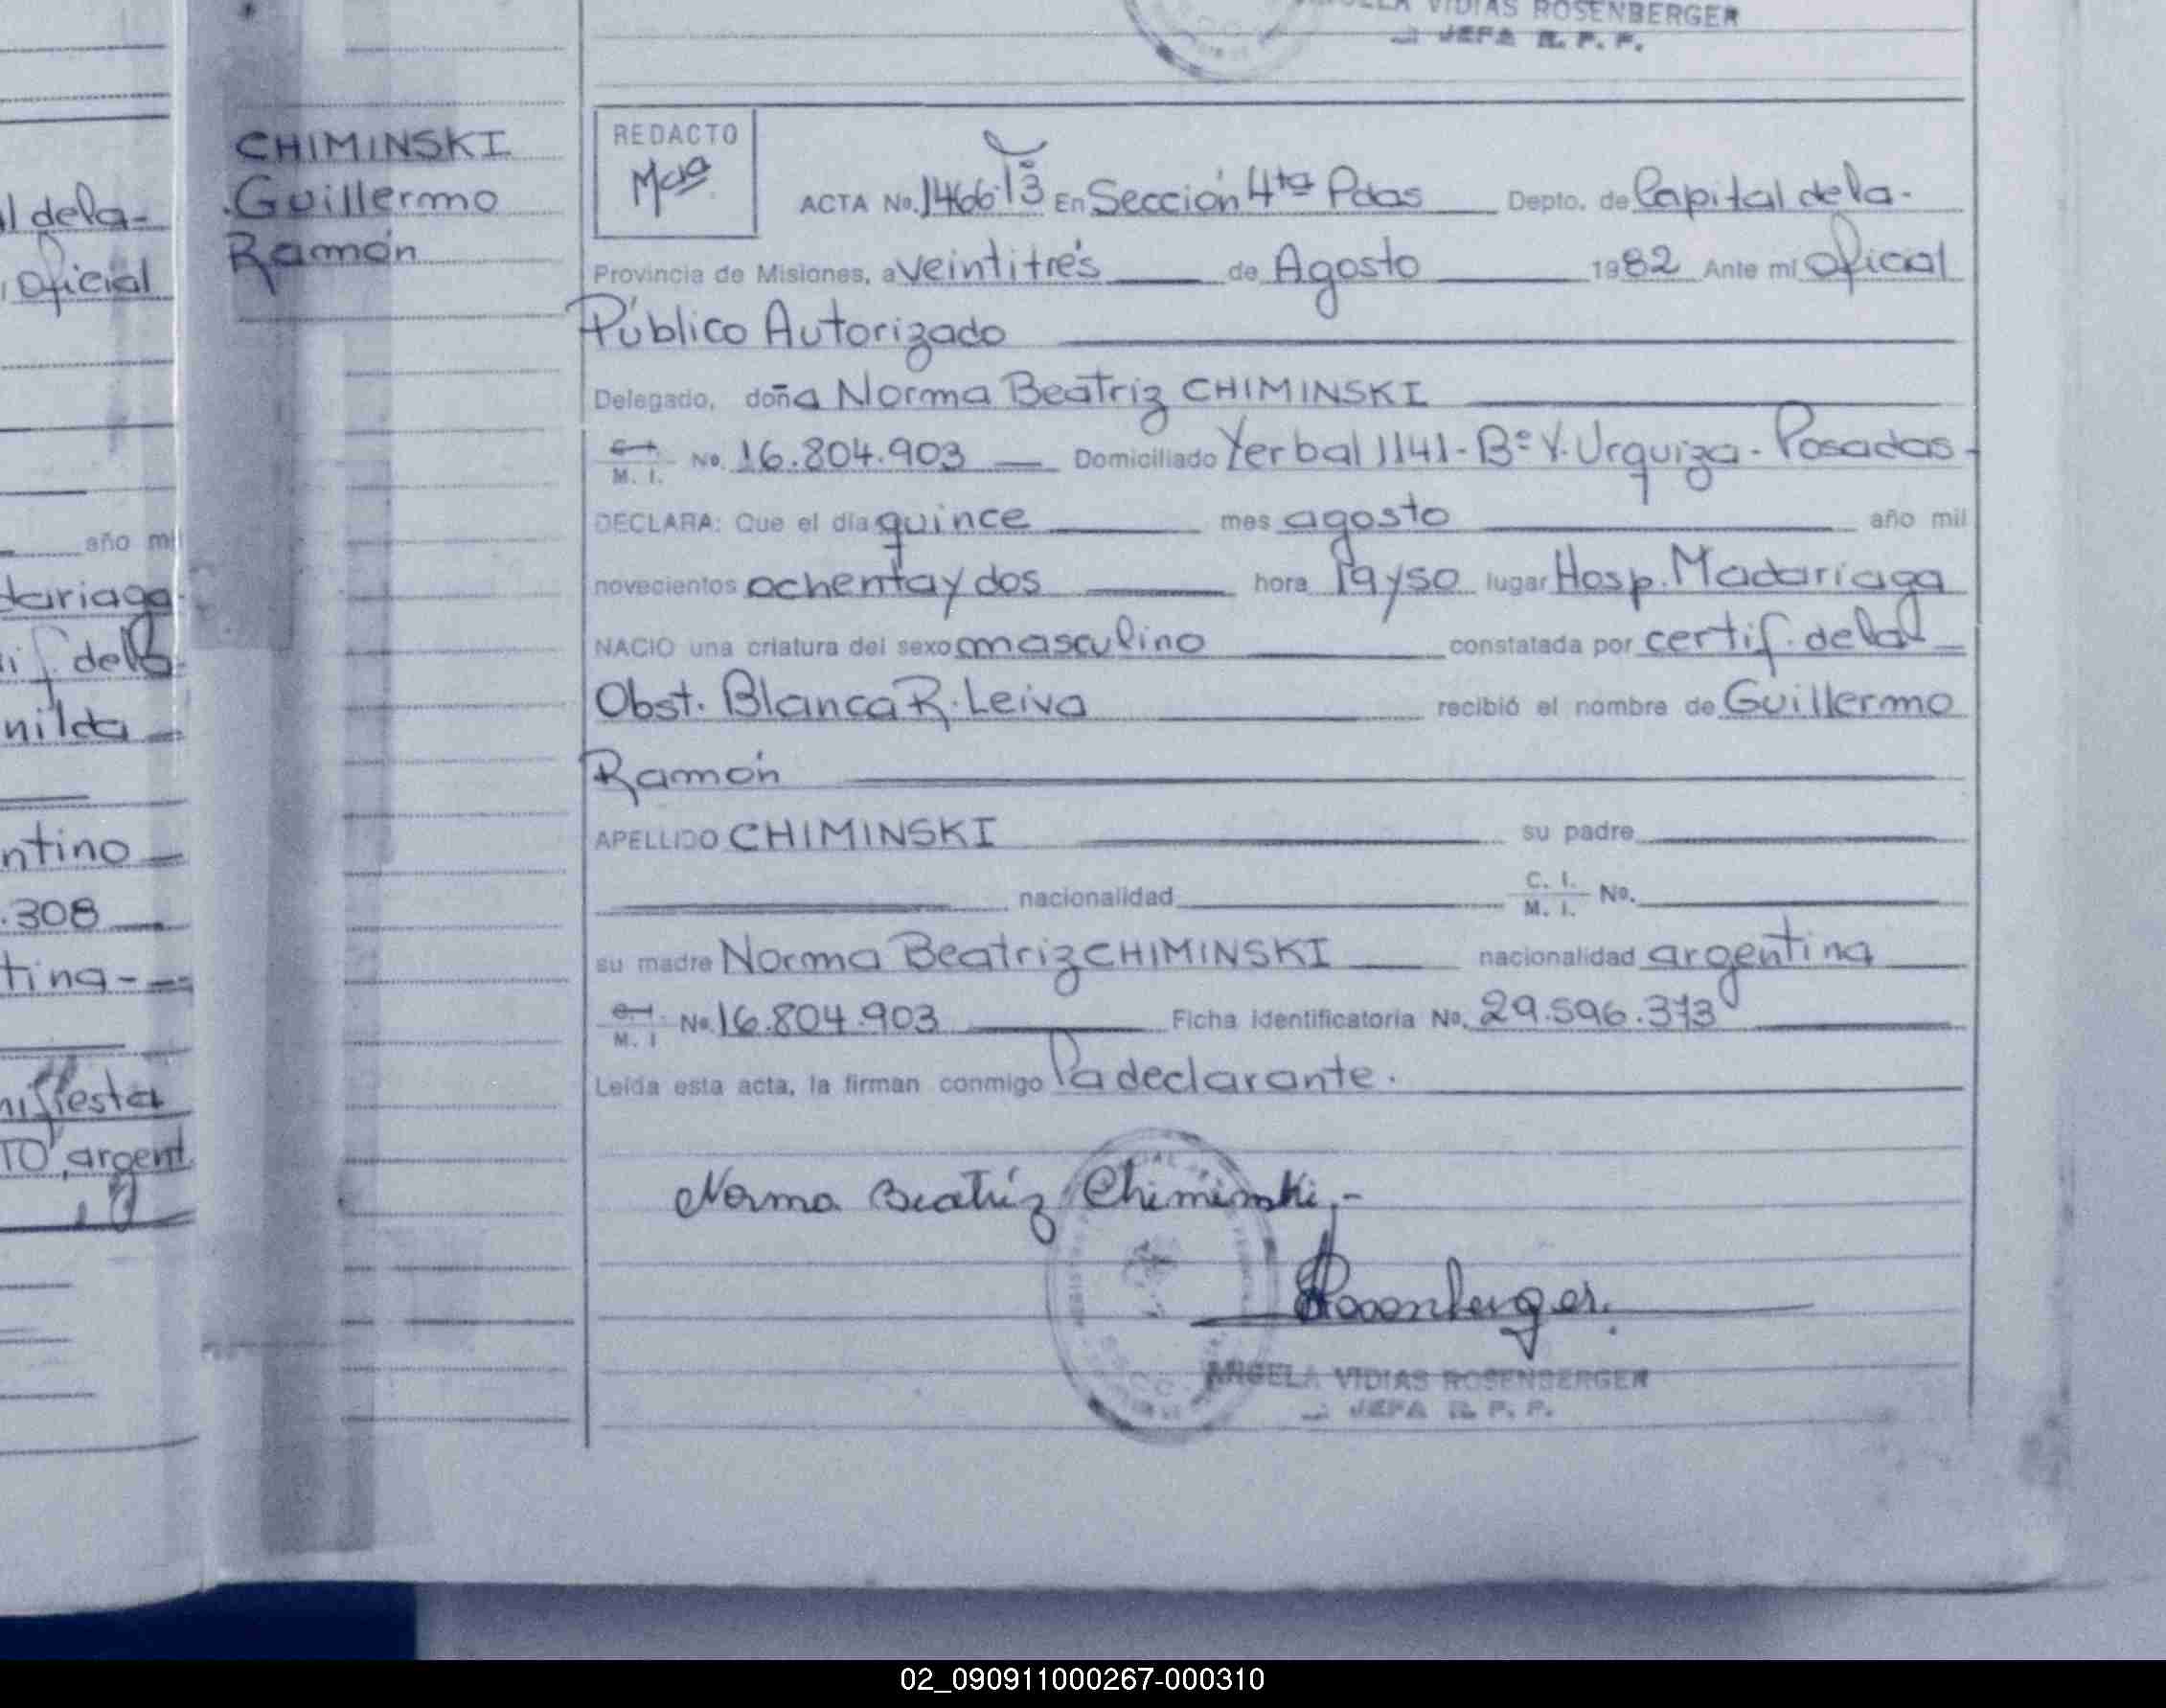 VIDIAS ROSENBERGER
JEFA R. P. F.
CHIMINSKI
Guillermo
Ramón
l dela-
Oficial
año mil
dariaga
dela
nilda
ntino
.308
tina-
TO, argent.
REDACTO
ACTA No. En Sección 4ta Pdas Depto. de Capital dela-
Provincia de Misiones, a veintitrés de Agosto 1982 Ante mí Oficial
Público Autorizado
Delegado, doña Norma Beatriz CHIMINSKI
M. I. No. 16.804.903 Domiciliado Yerbal 1141-Bº V. Urquiza-Posadas-
DECLARA: Que el día quince mes agosto año mil
novecientos ochenta y dos hora 19y50 lugar Hosp. Madariaga
NACIO una criatura del sexo masculino constatada por certif. dela
Obst. Blanca R. Leiva recibió el nombre de Guillermo
Ramón
APELLIDO CHIMINSKI su padre
nacionalidad C. I. M. I. No.
su madre Norma Beatriz CHIMINSKI nacionalidad argentina
M. I No. 16.804.903 Ficha identificatoria No. 29.596.373
Leída esta acta, la firman conmigo la declarante.
Norma Beatriz Chiminski.-
Rosenberger.
ANGELA VIDIAS ROSENBERGER
JEFA R. P. F.
02_090911000267-000310